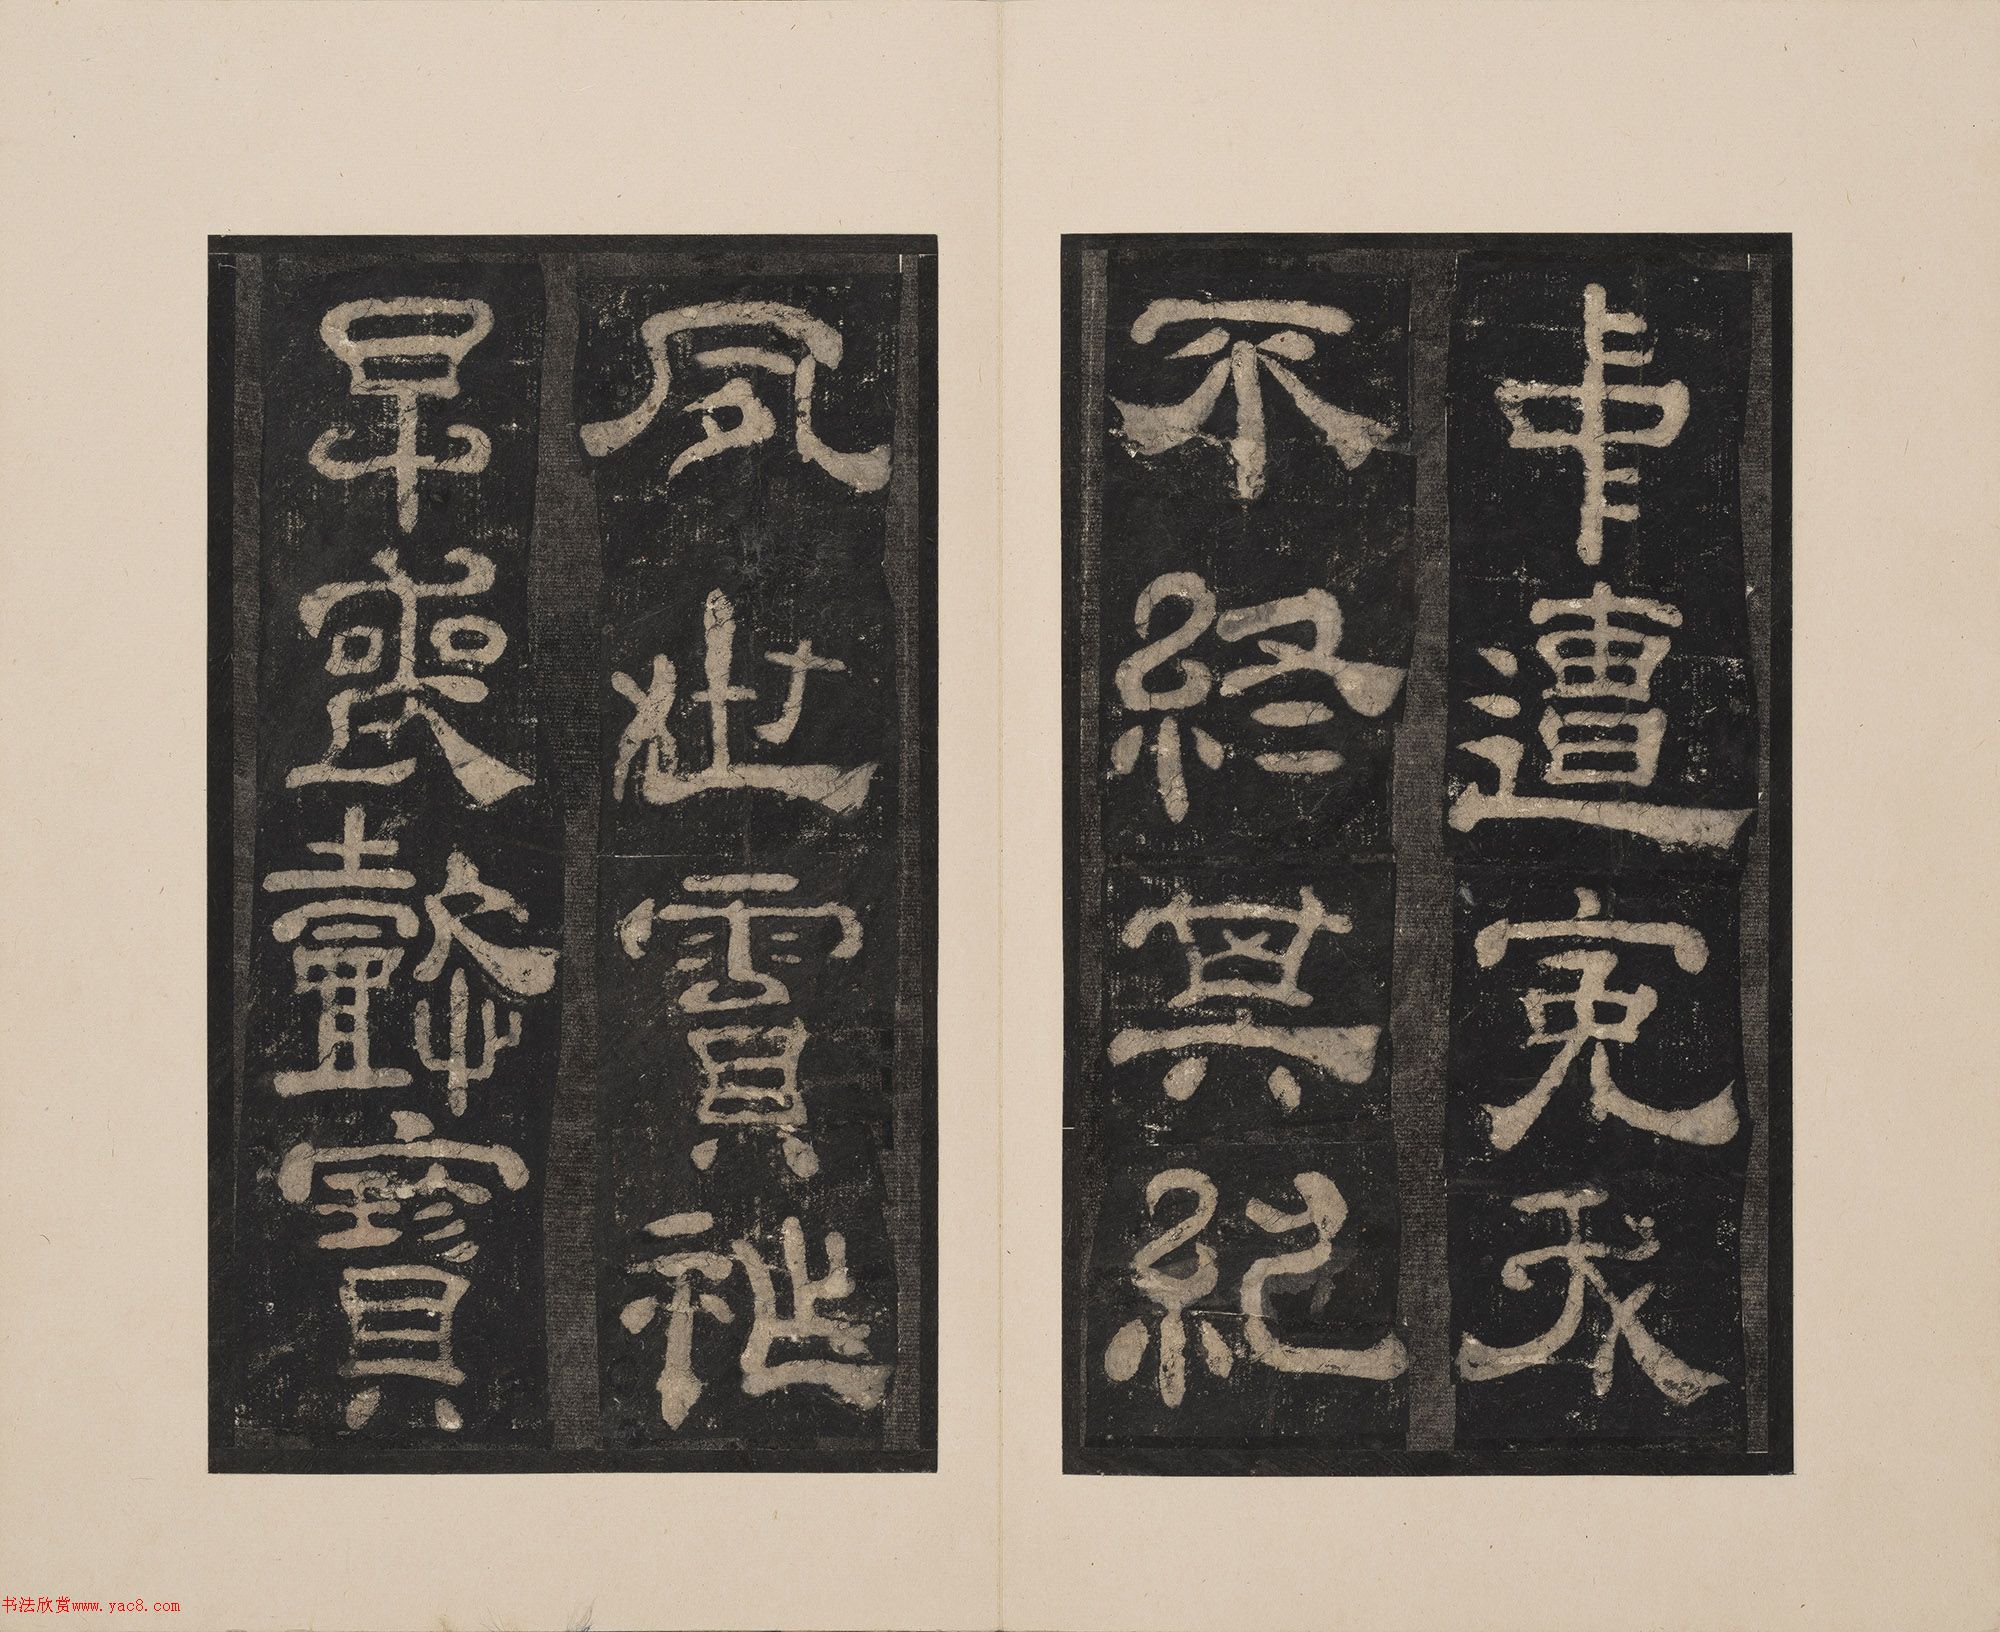 中遭冤夭
不終其紀
夙世霣祚
早喪懿寶
书法欣赏www.yac8.com